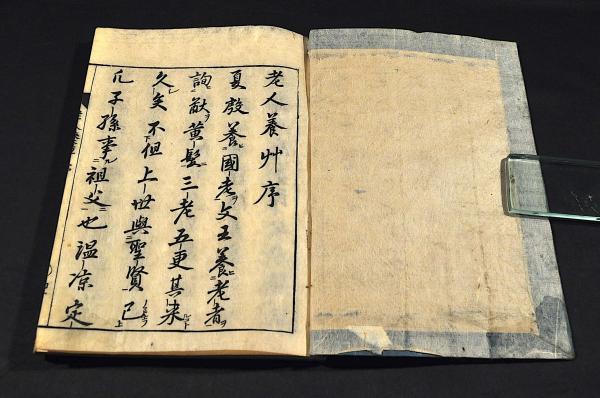 老人養艸序
夏殷養國老文王養老者
詢猷黄髪三老五更其来
久矣不但上世與聖賢已
凡子孫事祖父也温凉定